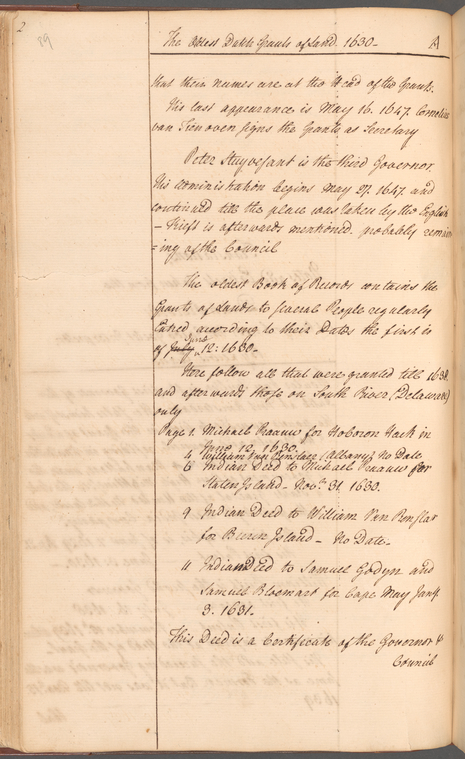 2
89
The Oldest Dutch Grants of Land. 1630- A
that their names are at the Head of the Grant.
His last appearance is May 16. 1647. Cornelius
van Tienoven signs the Grants as Secretary
Peter Stuyvesant is the third Governor.
His administration begins May 27. 1647 and
continued till the place was taken by the English
- Kieft is afterwards mentioned probably remain
=ing of the Council
The oldest Book of Records contains the
Grants of Lands to several People regularly
Entred according to their Dates the first is
June
of July 12: 1630-
Here follow all that were granted till 1638.
and afterwards those on South River (Delaware)
only
Page 1. Michael Praauw for Hoboron Hack in
June 12. 1630.
4 William Van Renslaer (Albany) No Date
6 Indian Deed to Michael Praauw for
Staten Island- Nov.r 31. 1630.
9 Indian Deed to William Van Renslar
for Island- No Date-
11 Indian Deed to Samuel Godyn and
Samuel Bloemart for Cape May Jany
3. 1631.
This Deed is a Certificate of the Governor &
Council